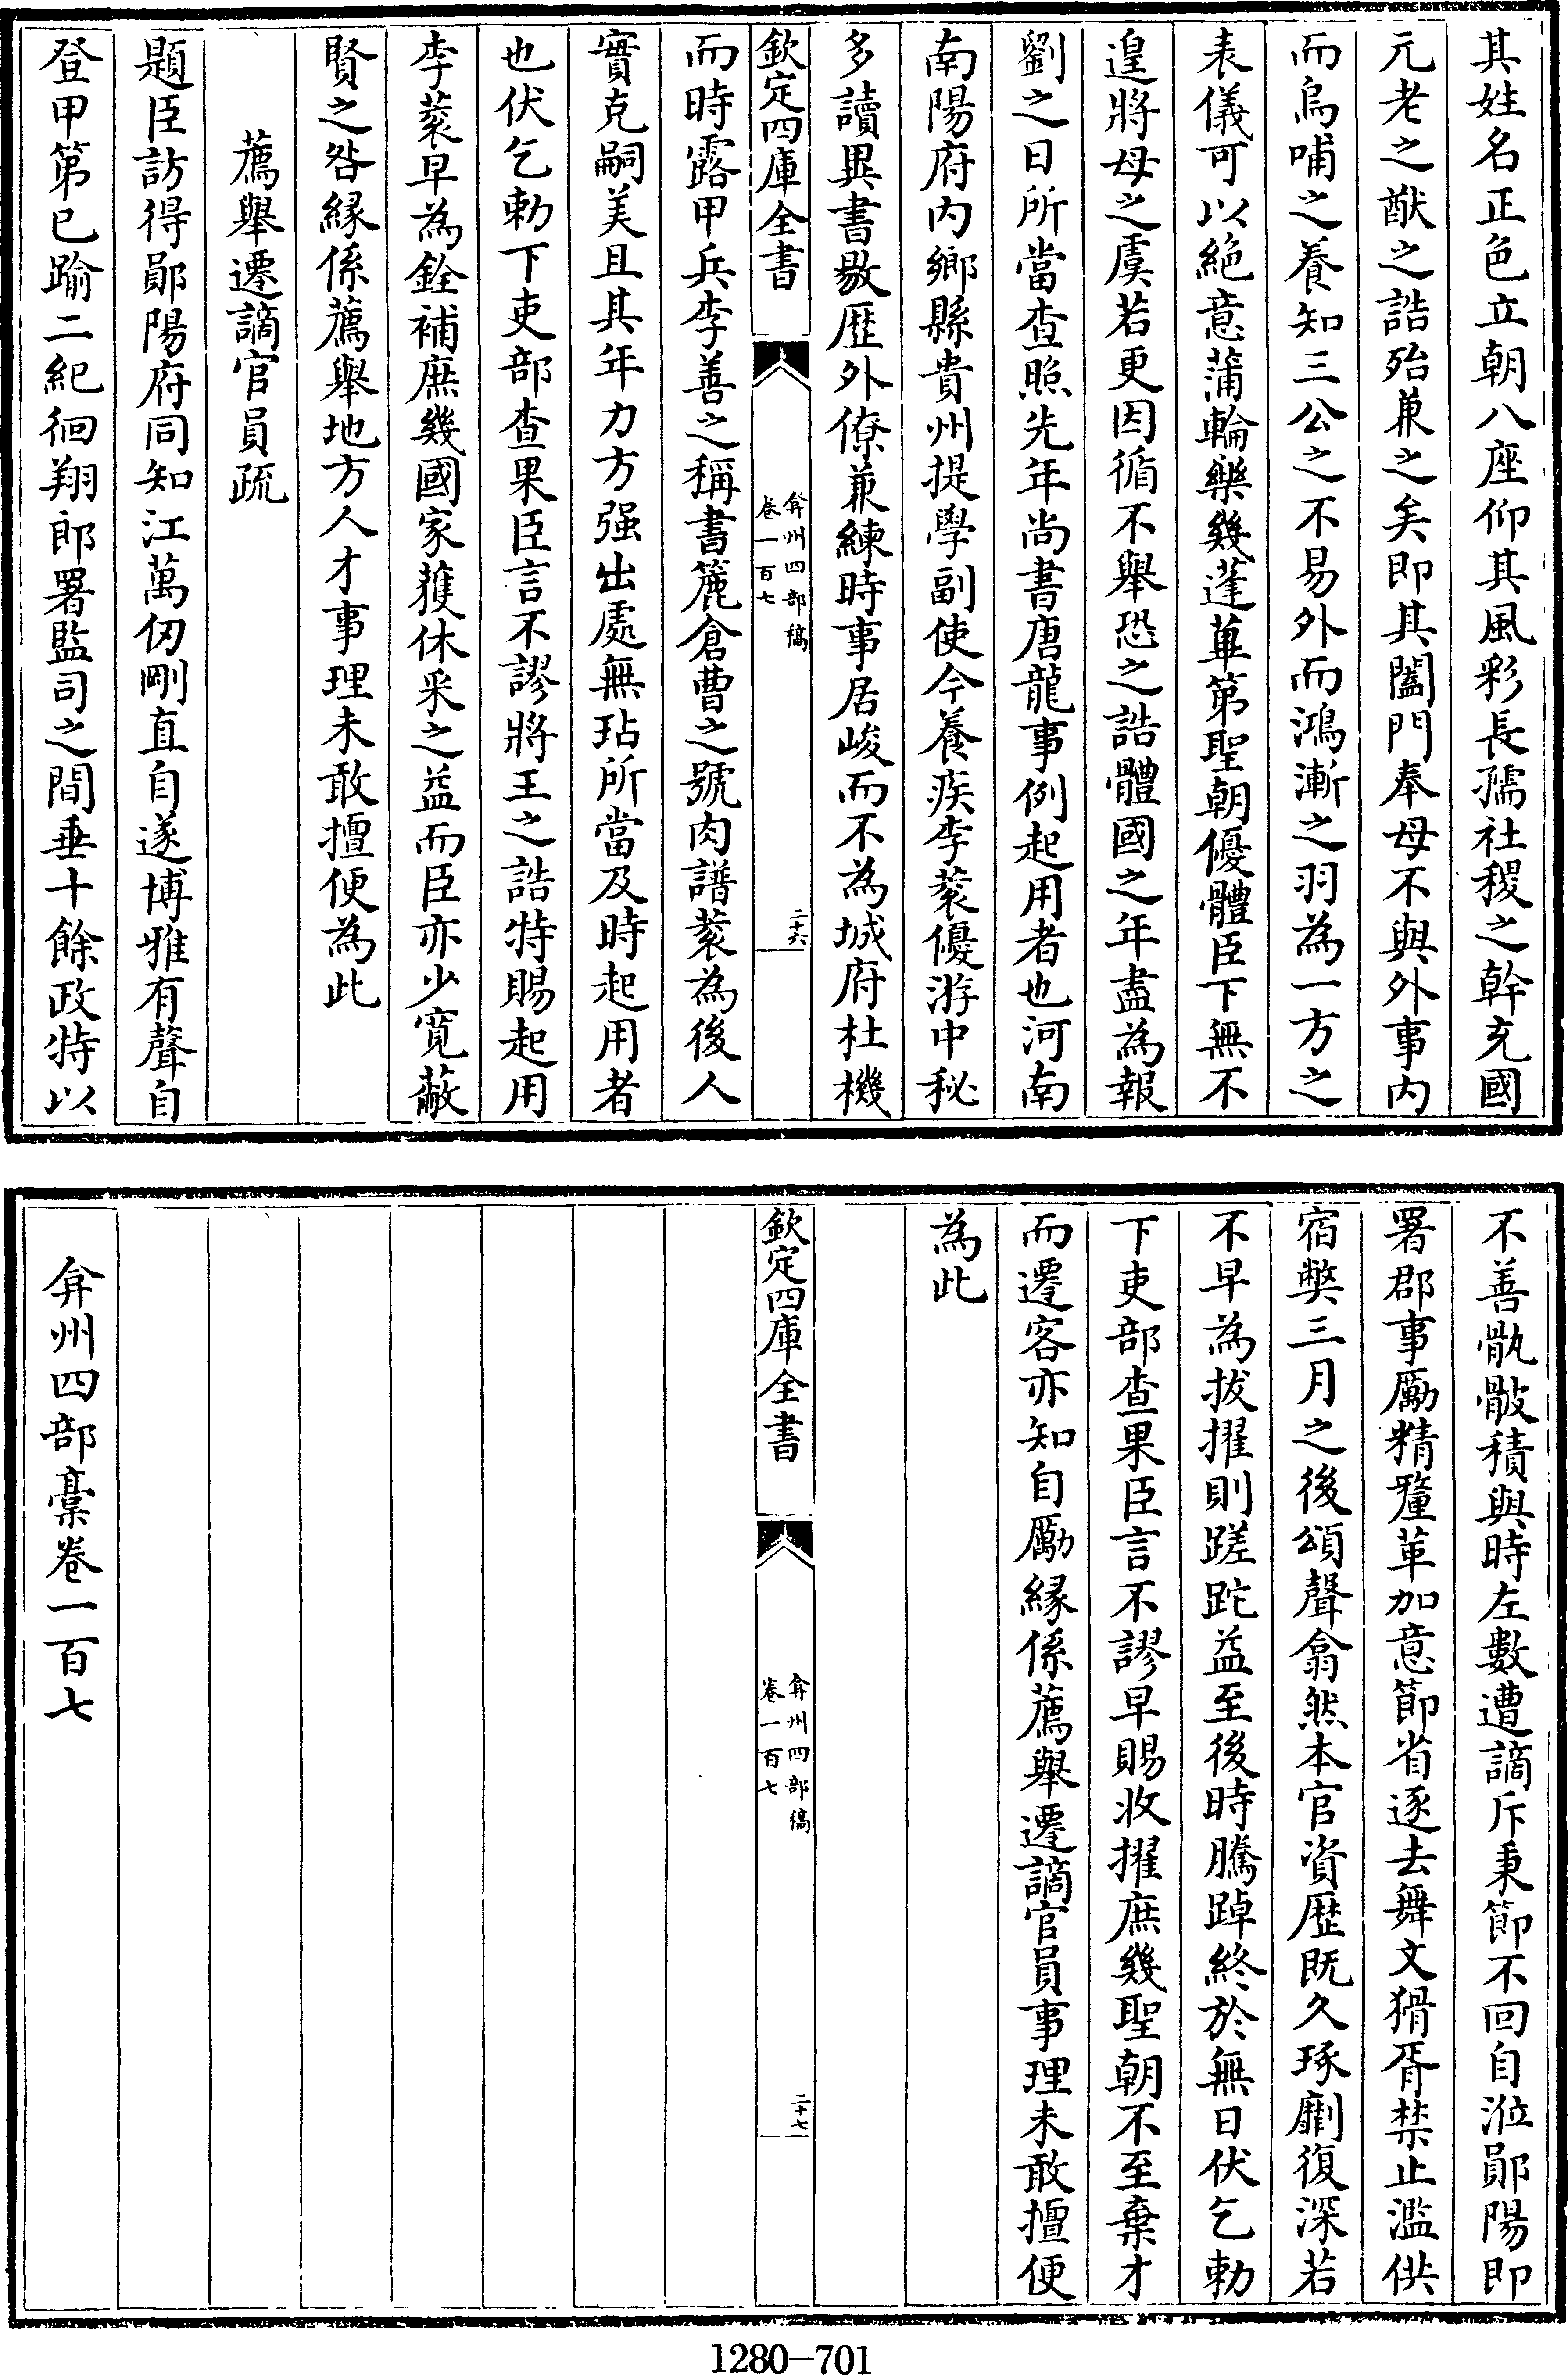 其姓名正色立朝八座仰其風彩長孺社稷之幹充國
元老之猷之誥殆兼之矣即其闔門奉母不與外事內
而烏哺之養知三公之不易外而鴻漸之羽為一方之
表儀可以絶意蒲輪樂幾蓬蓽第聖朝優體臣下無不
遑將母之虞若更因循不舉恐之誥體國之年盡為報
劉之日所當查照先年尚書唐龍事例起用者也河南
南陽府內鄉縣貴州提學副使今養疾李蔉優游中秘
多讀異書敭歴外僚兼練時事居峻而不為城府杜機
欽定四庫全書
弇州四部稿
卷一百七
二十六
而時露甲兵李善之稱書簏倉曹之號肉譜蔉為後人
實克嗣美且其年力方强出處無玷所當及時起用者
也伏乞勅下吏部查果臣言不謬將王之誥特賜起用
李蔉早為銓補庶幾國家獲休采之益而臣亦少寛蔽
賢之咎緣係薦舉地方人才事理未敢擅便為此
薦舉遷謫官員疏
題臣訪得鄖陽府同知江萬仞剛直自遂博雅有聲自
登甲第已踰二紀徊翔郎署監司之間垂十餘政特以
不善骫骳積與時左數遭謫斥秉節不回自涖鄖陽即
署郡事勵精釐革加意節省逐去舞文猾胥禁止濫供
宿弊三月之後頌聲翕然本官資歴既久琢劘復深若
不早為拔擢則蹉跎益至後時騰踔終於無日伏乞勅
下吏部查果臣言不謬早賜收擢庶幾聖朝不至棄才
而遷客亦知自勵緣係薦舉遷謫官員事理未敢擅便
為此
欽定四庫全書
弇州四部稿
卷一百七
二十七
弇州四部稾卷一百七
1280-701